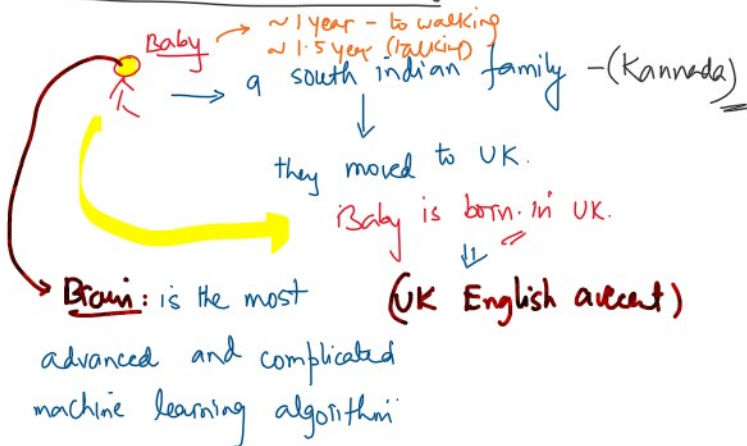 Baby
~ 1 year - to walking
~ 1.5 year (talking)
a south indian family - (Kannada)
they moved to UK.
Baby is born. in UK.
Brain: is the most
(UK English accent)
advanced and complicated
machine learning algorithm